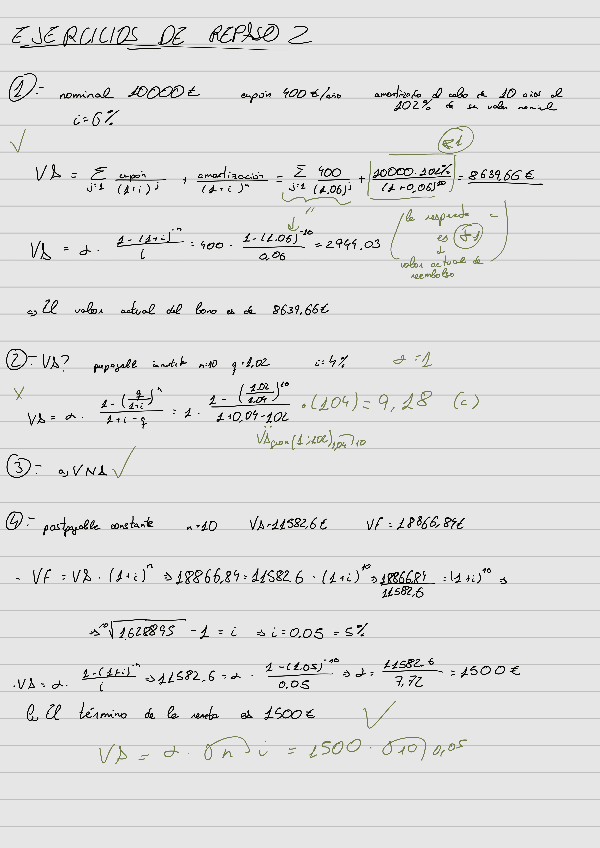 EJERCICIOS DE REPASO 2
①:- nominal 10000€ cupón 400€/año amortizado al cabo de 10 años al 102% de su valor nominal
i=6%
VA = Σ j=1 cupón/(1+i)^j + amortización/(1+i)^n = Σ j=1 400/(1,06)^j + 10000·102%/(1+0,06)^10 = 8639,66€
VA = α · (1-(1+i)^-n)/i = 400 · (1-(1.06)^-10)/0,06 = 2944,03
(la respuesta es F1
valor actual de reembolso)
a) El valor actual del bono es de 8639,66€
②:- VA? prepagable n=10 q=1,02 i=4% α=1
X
VA = α · (1-(q/(1+i))^n)/(1+i-q) = 1 · (1-(1.02/1.04)^10)/(1+0,04-1.02) · (1.04) = 9,18 (c)
③:- a) VNA ✓
④:- postpagable constante n=10 VA=11582,6€ VF=18866,84€
- VF = VA · (1+i)^n ⇒ 18866,84 = 11582,6 · (1+i)^10 ⇒ 18866,84/11582,6 = (1+i)^10 ⇒
⇒ ¹⁰√1,628895 - 1 = i ⇒ i=0.05 = 5%
·VA = α · (1-(1+i)^-n)/i ⇒ 11582,6 = α · (1-(1.05)^-10)/0.05 ⇒ α = 11582,6/7,72 = 1500€
El término de la renta es 1500€ ✓
VA = α · σn⌉i = 1500 · σ10⌉0,05